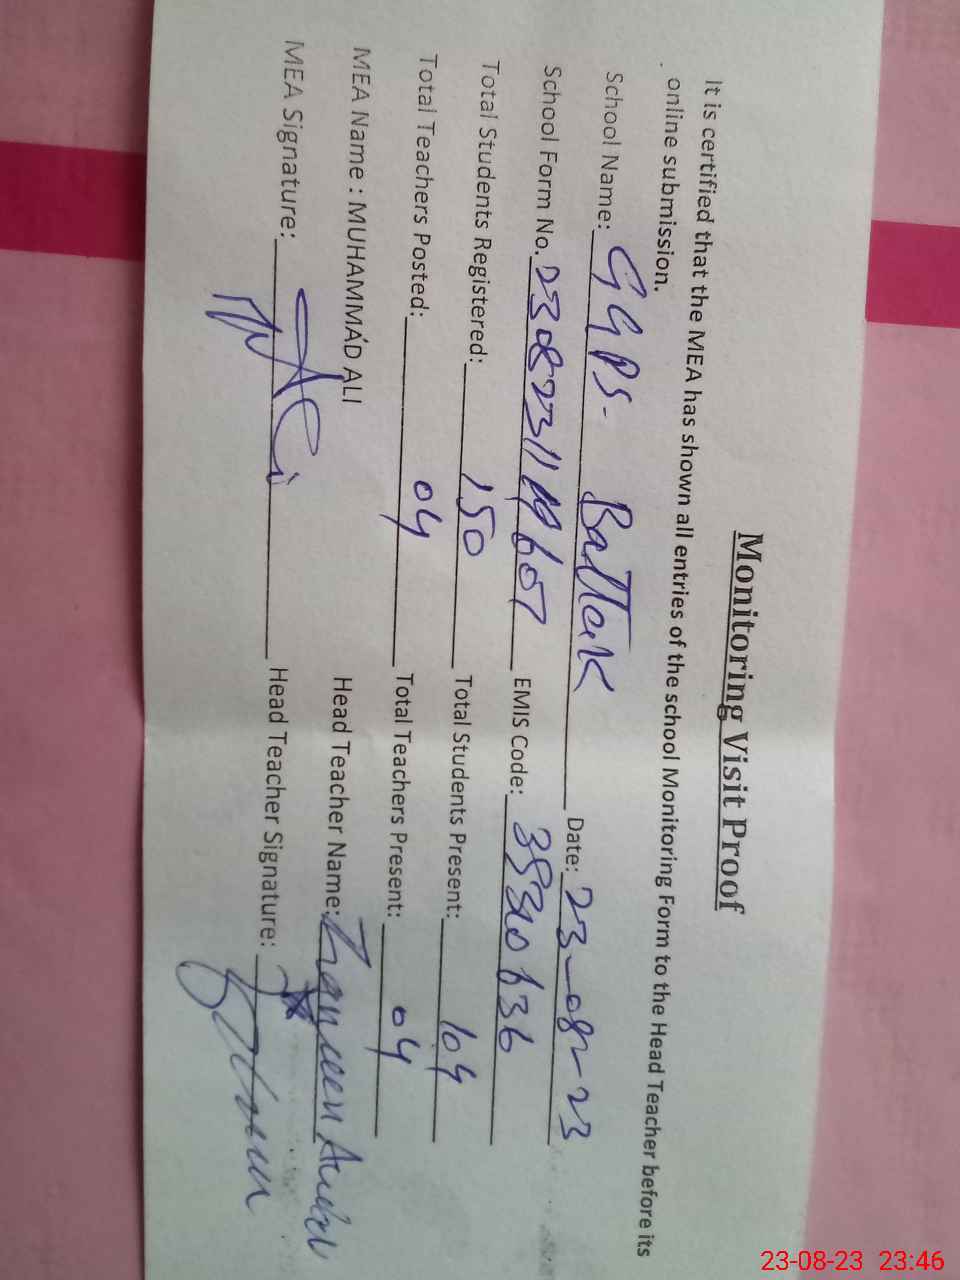 Monitoring Visit Proof
It is certified that the MEA has shown all entries of the school Monitoring Form to the Head Teacher before its
online submission.
School Name: GGPS- Battak Date: 23-08-23
School Form No. 230823119607 EMIS Code: 38310636
Total Students Registered: 150 Total Students Present: 104
Total Teachers Posted: 04 Total Teachers Present: 04
MEA Name : MUHAMMAD ALI Head Teacher Name:
MEA Signature: Head Teacher Signature:
23-08-23 23:46